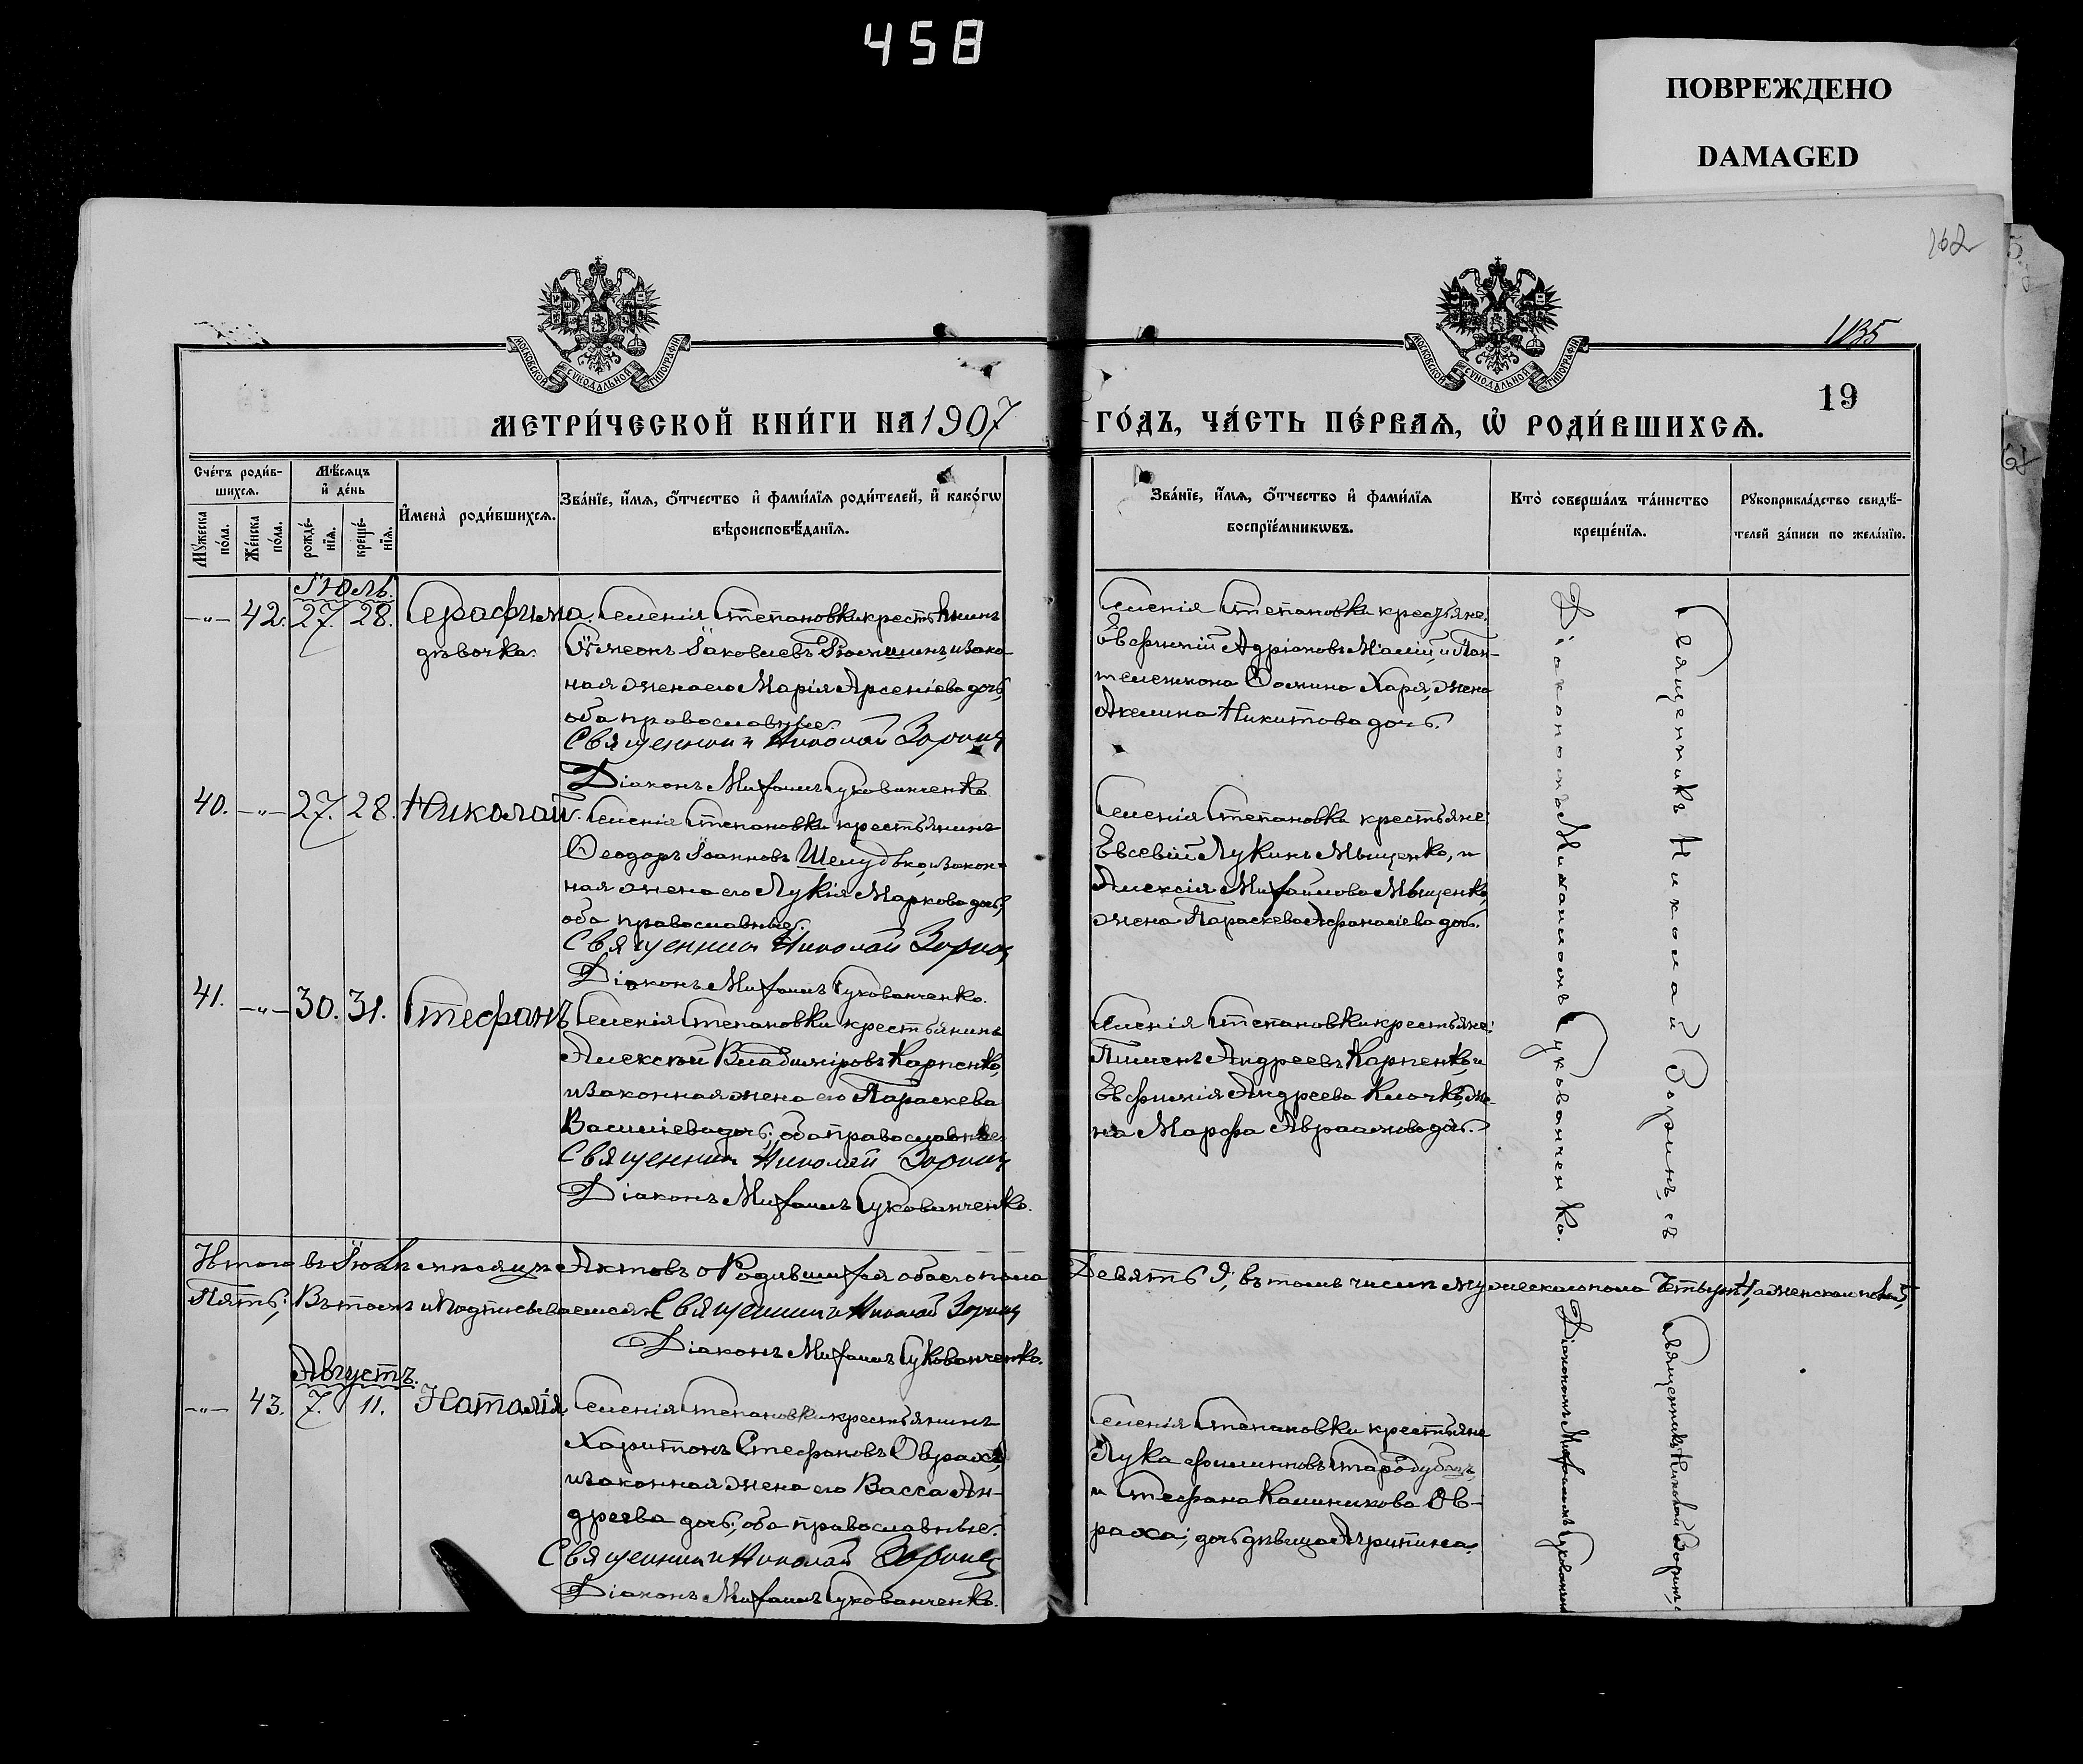 458
ПОВРЕЖДЕНО
DAMAGED
162
1135
19
МОСКОВСКОЙ СѴНОДАЛЬНОЙ ТИПОГРАФІИ
МОСКОВСКОЙ СѴНОДАЛЬНОЙ ТИПОГРАФІИ
МЕТРИ́ЧЕСКОЙ КНИ́ГИ НА 1907
ГО́ДЪ, ЧА́СТЬ ПЕ́РВАѦ, Ѡ҆ РОДИ́ВШИХСѦ.
Сче́тъ роди́в-
шихсѧ.
Мꙋ́жеска по́ла.
Же́нска по́ла.
Мѣ́сѧцъ
и҆ де́нь
рожде́-
нїѧ.
креще́-
нїѧ.
И҆мена̀ роди́вшихсѧ.
Зва́нїе, и҆́мѧ, ѻ҆́тчество и҆ фами́лїѧ роди́телей, и҆ како́гѡ
вѣроисповѣ́данїѧ.
Зва́нїе, и҆́мѧ, ѻ҆́тчество и҆ фами́лїѧ
воспрїе́мникѡвъ.
Кто̀ соверша́лъ та́инство
креще́нїѧ.
Рꙋкоприкла́дство свидѣ́-
телей за́писи по жела́нїю.
Іюль.
-„- 42. 27. 28. Серафима
дѣвочка.
Селенія Степановки крестьянинъ
Сѵмеонъ Іаковлевъ и закон-
ная жена его Марія Арсеніева дочь,
оба православные.
Священникъ Николай Зоринъ
Діаконъ Михаилъ Сукованченко.
Селенія Степановки крестьяне:
Евфимій Адріановъ и Пан-
телеимона Ѳомина Харя, жена
Акелина Никитова дочь.
40. -„- 27. 28. Николай.
Селенія Степановки крестьянинъ
Ѳеодоръ Іоанновъ Шелудько, и закон-
ная жена его Лукія Маркова дочь,
оба православные.
Священникъ Николай Зоринъ
Діаконъ Михаилъ Сукованченко.
Селенія Степановки крестьяне:
Евсевій Лукинъ Мыщенко, и
Алексія Михаилова Мыщенко,
жена Параскева Афанасіева дочь.
41. -„- 30. 31. Стефанъ
Селенія Степановки крестьянинъ
Алексѣй Владиміровъ Карпенко,
и законная жена его Параскева
Василіева дочь; оба православные
Священникъ Николай Зоринъ
Діаконъ Михаилъ Сукованченко.
Селенія Степановки крестьяне:
Пименъ Андреевъ Карпенко, и
Евфимія Андреева Клочко, же-
на Марфа Авраамова дочь.
Священникъ Николай Зоринъ, съ
Діакономъ Михаиломъ Сукованченко.
Итого въ Іюлѣ мѣсяцѣ Актовъ о Родившихся обоего пола Девять 9, въ томъ числѣ мужескаго пола Четыре 4, а женскаго пола 5,
Пять; Въ томъ и подписываемся: Священникъ Николай Зоринъ
Діаконъ Михаилъ Сукованченко.
Августъ.
-„- 43. 7. 11. Наталія
Селенія Степановки крестьянинъ
Харитонъ Стефановъ Оврахъ,
и законная жена его Васса Ан-
дреева дочь; оба православные.
Священникъ Николай Зоринъ
Діаконъ Михаилъ Сукованченко.
Селенія Степановки крестьяне
Лука Филипповъ Стародубецъ,
и Стефана Калиникова Ов-
раха; дочь дѣвица Агрипина.
Священникъ Николай Зоринъ,
Діакономъ Михаиломъ